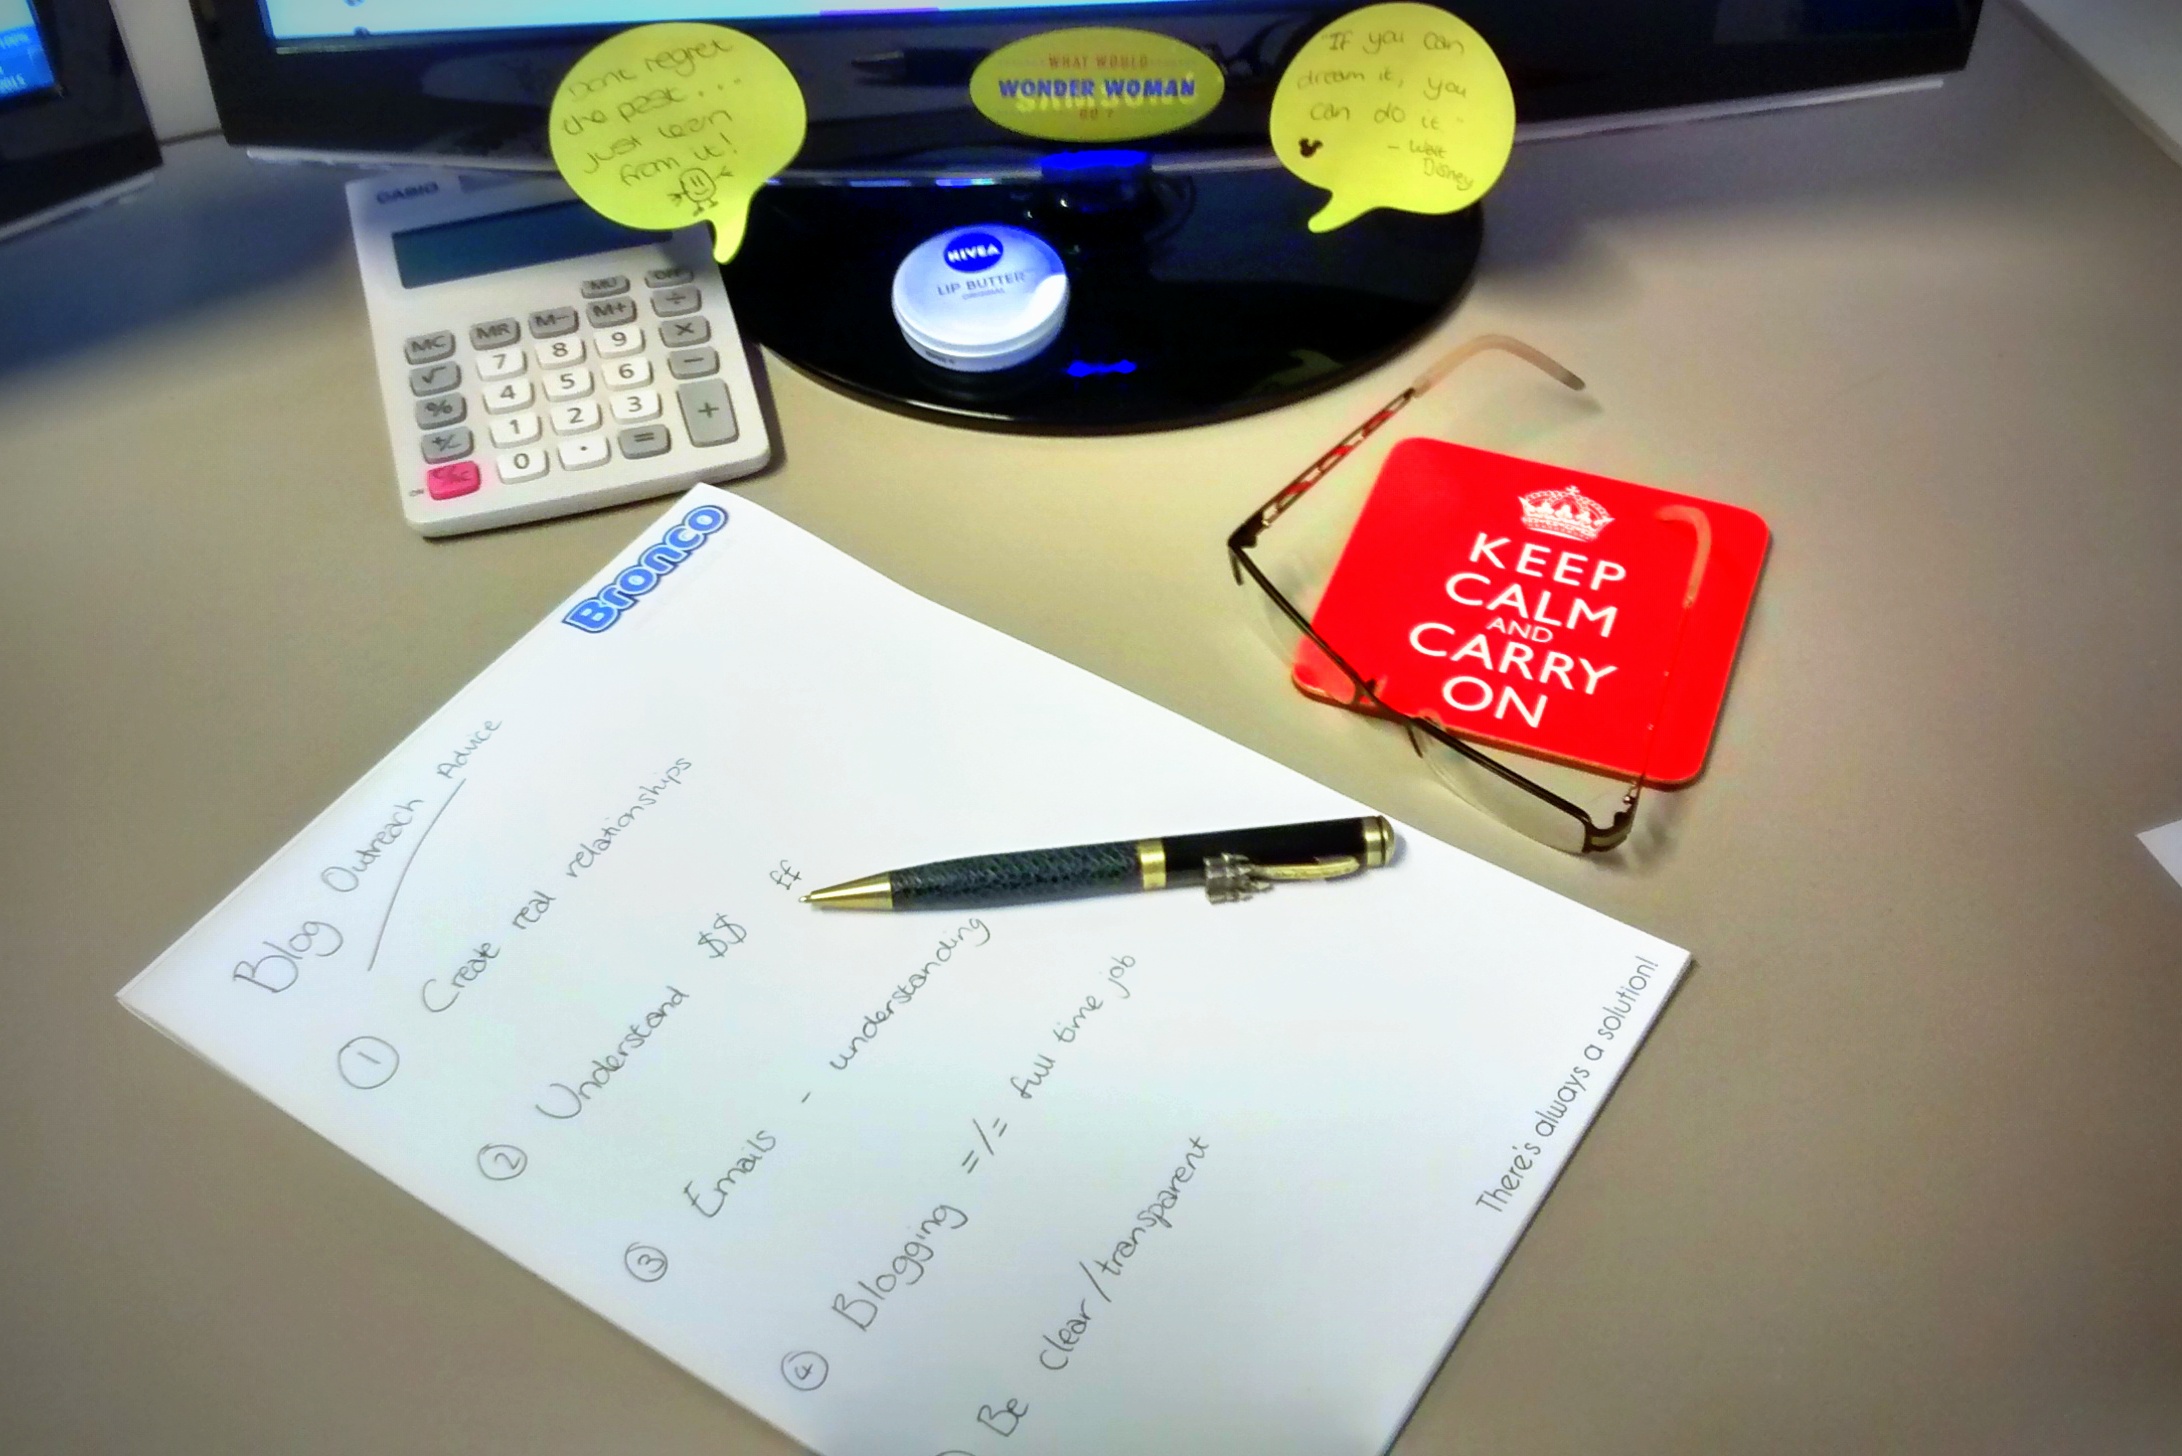 Dont regret
the past...
just learn
from it!
WHAT WOULD
WONDER WOMAN
DO?
SAMSUNG
"If you can
dream it, you
can do it"
- Walt
Disney
CASIO
MU
OFF
MC
MR
M-
M+
÷
√
7
8
9
×
%
4
5
6
−
+/-
1
2
3
+
ON
C/AC
0
.
=
NIVEA
LIP BUTTER
ORIGINAL
KEEP
CALM
AND
CARRY
ON
Bronco
Blog Outreach Advice
1 Create real relationships
2 Understand $$ ££
3 Emails - understanding
4 Blogging =/= full time job
Be clear/transparent
There's always a solution!